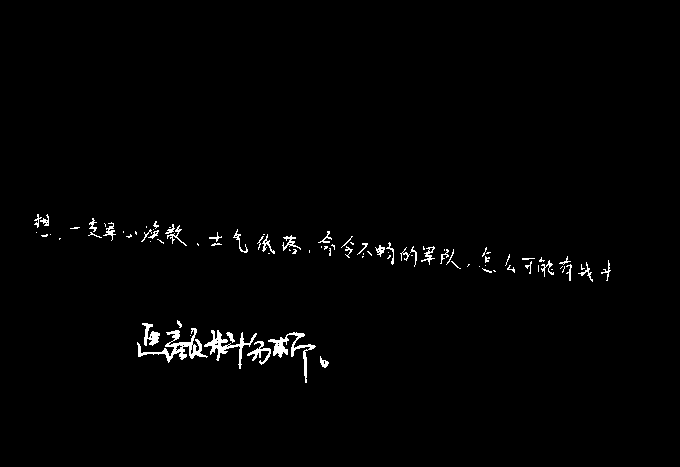 想,一支军心涣散、士气低落,命令不畅的军队,怎么可能有战斗
颜料分析。